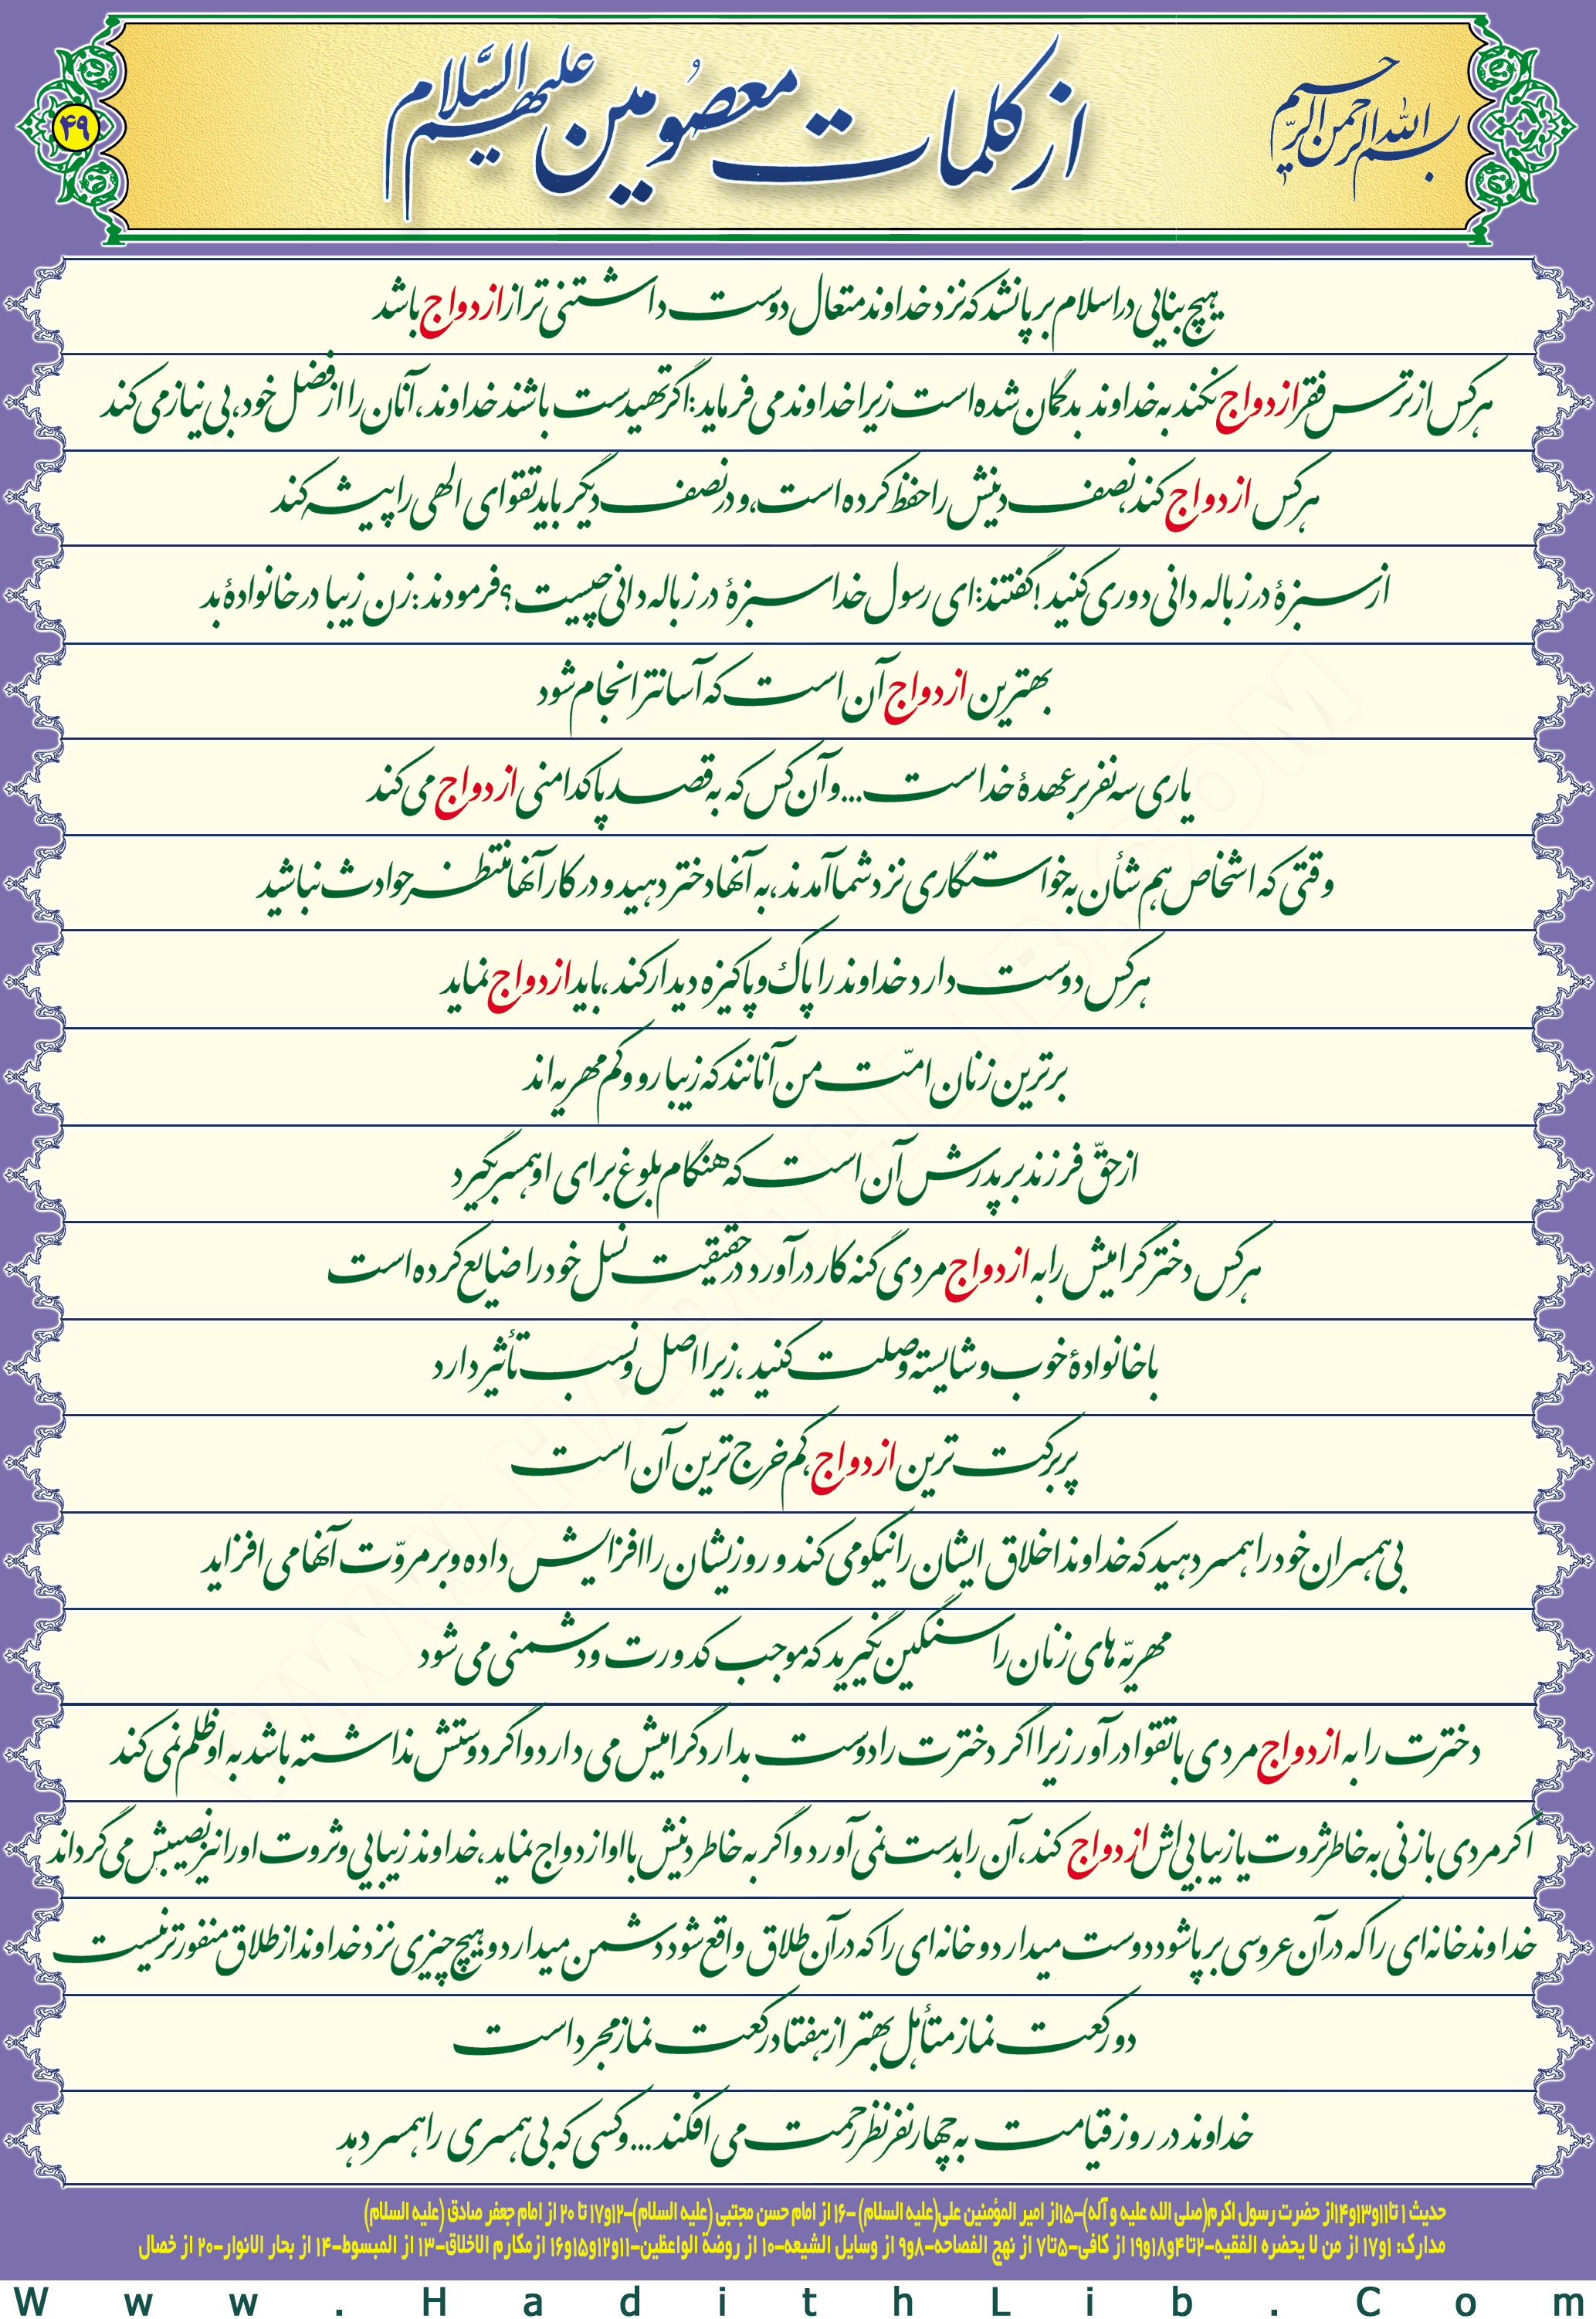 بسم الله الرحمن الرحیم
از کلمات معصومین علیهم السّلام
۴۹
هیچ بنایی در اسلام بر پا نشد که نزد خداوند متعال دوست داشتنی تر از ازدواج باشد
هر کس از ترس فقر ازدواج نکند به خداوند بدگمان شده است زیرا خداوند می فرماید: اگر تهیدست باشند خداوند، آنان را از فضل خود، بی نیاز می کند
هر کس ازدواج کند، نصف دینش را حفظ کرده است، و در نصف دیگر باید تقوای الهی را پیشه کند
از سبزهٔ در زباله دانی دوری کنید! گفتند: ای رسول خدا سبزهٔ در زباله دانی چیست؟ فرمودند: زن زیبا در خانوادهٔ بد
بهترین ازدواج آن است که آسانتر انجام شود
یاری سه نفر بر عهدهٔ خداست ... و آن کس که به قصد پاکدامنی ازدواج می کند
وقتی که اشخاص هم شأن به خواستگاری نزد شما آمدند، به آنها دختر دهید و در کار آنها منتظر حوادث نباشید
هر کس دوست دارد خداوند را پاک و پاکیزه دیدار کند، باید ازدواج نماید
برترین زنان امّت من آنانند که زیبارو و کم مهریه اند
از حقّ فرزند بر پدرش آن است که هنگام بلوغ برای او همسر بگیرد
هر کس دختر گرامیش را به ازدواج مردی گنه کار درآورد در حقیقت نسل خود را ضایع کرده است
با خانوادهٔ خوب و شایسته وصلت کنید، زیرا اصل و نسب تأثیر دارد
پر برکت ترین ازدواج، کم خرج ترین آن است
بی همسران خود را همسر دهید که خداوند اخلاق ایشان را نیکو می کند و روزیشان را افزایش داده و بر مروّت آنها می افزاید
مهریّه های زنان را سنگین نگیرید که موجب کدورت و دشمنی می شود
دخترت را به ازدواج مردی با تقوا درآور زیرا اگر دخترت را دوست بدارد گرامیش می دارد و اگر دوستش نداشته باشد به او ظلم نمی کند
اگر مردی با زنی به خاطر ثروت یا زیبایی اش ازدواج کند، آن را بدست نمی آورد و اگر به خاطر دینش با او ازدواج نماید، خداوند زیبایی و ثروت او را نیز نصیبش می گرداند
خداوند خانه ای را که در آن عروسی بر پا شود دوست میدارد و خانه ای را که در آن طلاق واقع شود دشمن میدارد و هیچ چیزی نزد خداوند از طلاق منفورتر نیست
دو رکعت نماز متأهل بهتر از هفتاد رکعت نماز مجرد است
خداوند در روز قیامت به چهار نفر نظر رحمت می افکند ... و کسی که بی همسری را همسر دهد
حدیث ۱ تا۱۱و۱۳و۱۴از حضرت رسول اکرم(صلی الله علیه و آله)-۱۵از امیر المؤمنین علی(علیه السلام) -۱۶ از امام حسن مجتبی (علیه السلام)-۱۲و۱۷ تا ۲۰ از امام جعفر صادق (علیه السلام)
مدارک: ۱و۱۷ از من لا یحضره الفقیه-۲تا۴و۱۸و۱۹ از کافی-۵تا۷ از نهج الفصاحه-۸و۹ از وسایل الشیعه-۱۰ از روضة الواعظین-۱۱و۱۲و۱۵و۱۶ ازمکارم الاخلاق-۱۳ از المبسوط-۱۴ از بحار الانوار-۲۰ از خصال
Www.HadithLib.Com